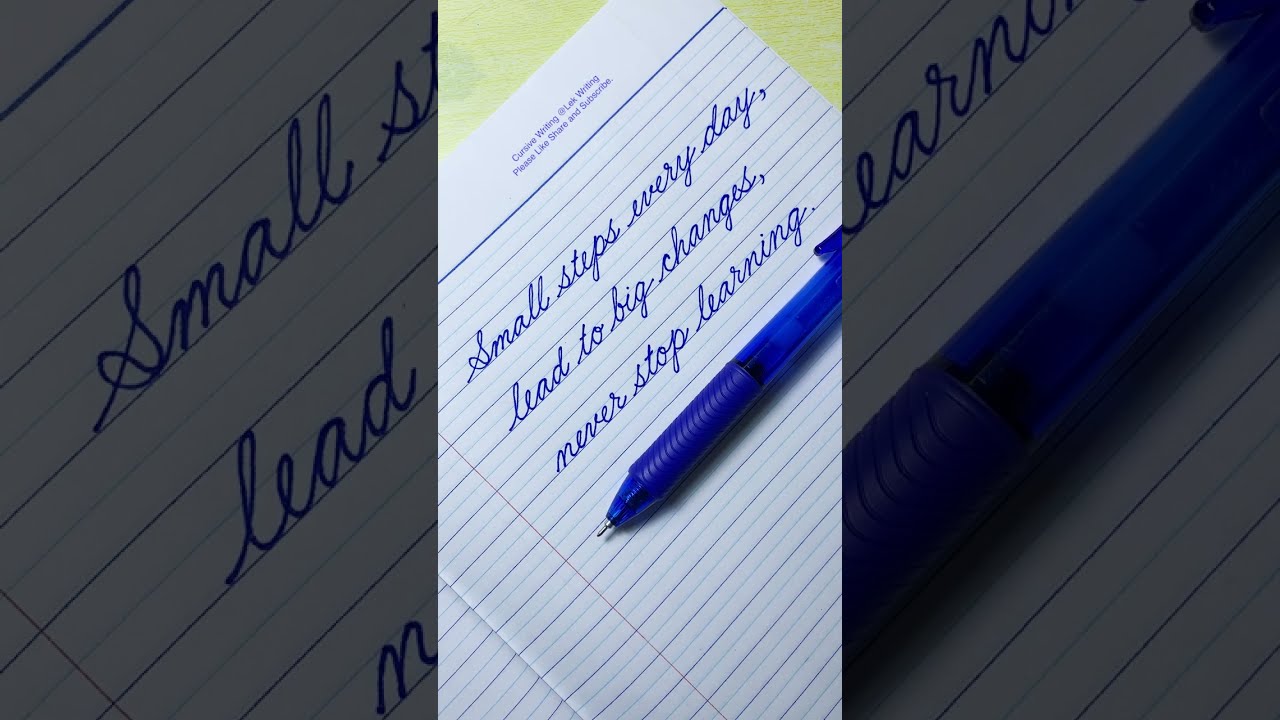 Cursive Writing @Lek Writing
Please Like Share and Subscribe.
Small steps every day,
lead to big changes,
never stop learning.